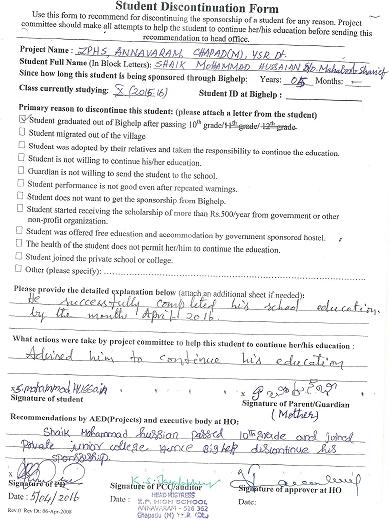 Student Discontinuation Form
Use this form to recommend for discontinuing the sponsorship of a student for any reason. Project
committee should make all attempts to help the student to continue her/his education before sending this
recommendation to head office.
Project Name : ZPHS, ANNAVARAM, CHAPAD(M), YSR Dt.
Student Full Name (In Block Letters): SHAIK MOHAMMAD HUSAIAN S/o. Mahaboob Shareef
Since how long this student is being sponsored through Bighelp: Years: 05 Months: —
Class currently studying: X (2015-16) Student ID at Bighelp :
Primary reason to discontinue this student: (please attach a letter from the student)
Student graduated out of Bighelp after passing 10th grade/ 11th grade/ 12th grade.
Student migrated out of the village
Student was adopted by their relatives and taken the responsibility to continue the education.
Student is not willing to continue his/her education.
Guardian is not willing to send the student to the school.
Student performance is not good even after repeated warnings.
Student does not want to get the sponsorship from Bighelp.
Student started receiving the scholarship of more than Rs.500/year from government or other
non-profit organization.
Student was offered free education and accommodation by government sponsored hostel.
The health of the student does not permit her/him to continue the education.
Student joined the private school or college.
Other (please specify):
Please provide the detailed explanation below (attach an additional sheet if needed):
He successfully completed his school education
by the month April 2016.
What actions were take by project committee to help this student to continue her/his education :
Advised him to continue his education
x S. mohammad Hussain x
Signature of student Signature of Parent/Guardian
(Mother)
Recommendations by AED(Projects) and executive body at HO:
Shaik Mohammad hussian passed 10th grade and joined
private junior college. Hence Bighelp discontinue his
sponsorship.
x x x
Signature of PD Signature of PCC/auditor Signature of approver at HO
Date : 5/04/2016 HEAD MISTRESS Date:
Z.P. HIGH SCHOOL
ANNAVARAM - 516 362
Chapadu (M) Y.S.R (Dt.)
Rev.0 Rev Dt: 06-Apr-2008